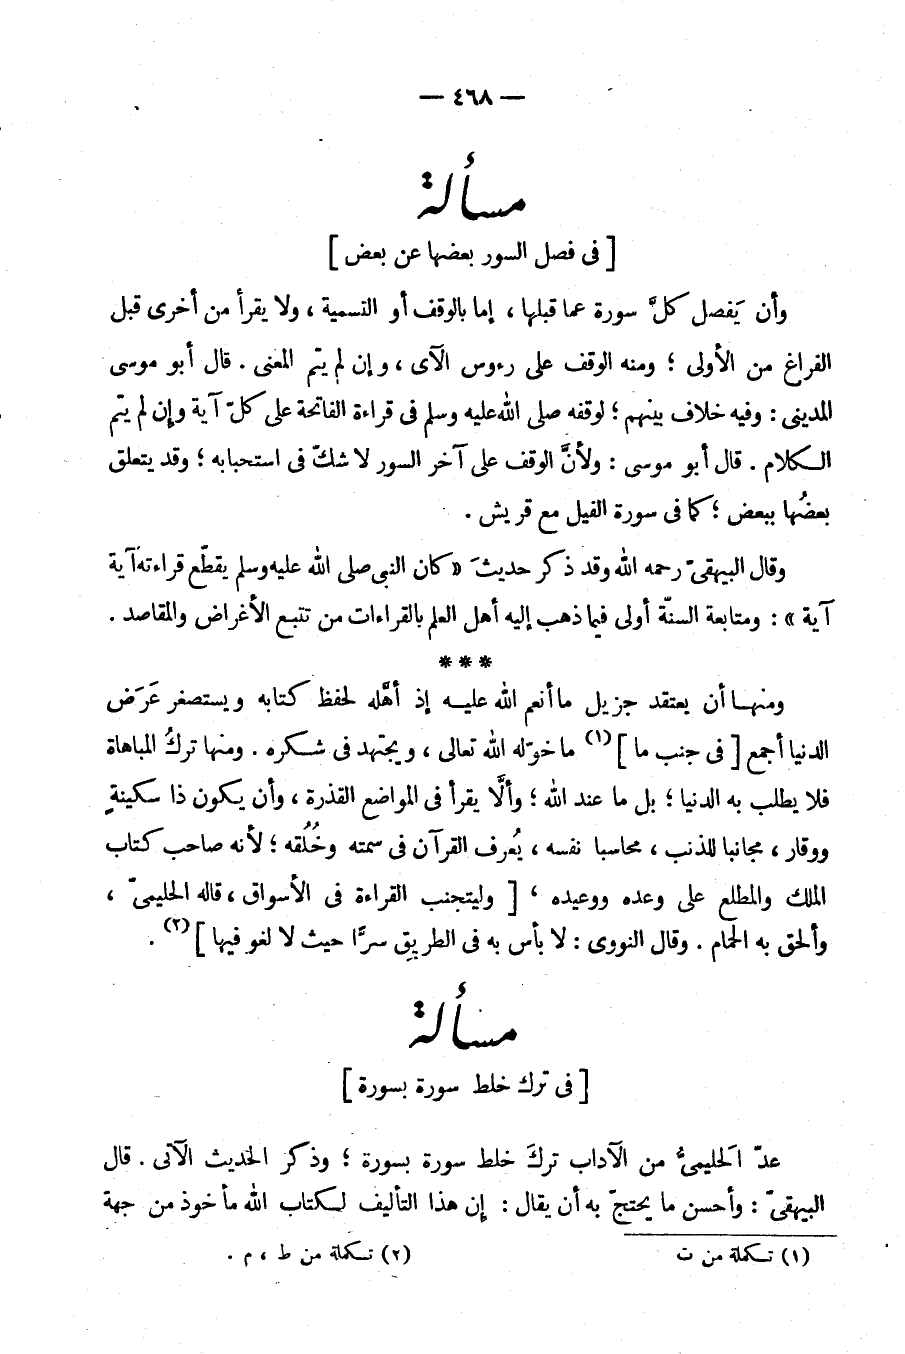 — ٤٦٨ —
مسألة
[ فى فصل السور بعضها عن بعض ]
وأن يَفصل كلَّ سورة عما قبلها ، إما بالوقف أو التسمية ، ولا يقرأ من أخرى قبل
الفراغ من الأولى ؛ ومنه الوقف على رءوس الآى ، وإن لم يتم المعنى . قال أبو موسى
المدينى : وفيه خلاف بينهم ؛ لوقفه صلى الله عليه وسلم فى قراءة الفاتحة على كلّ آية وإن لم يتم
الكلام . قال أبو موسى : ولأنَّ الوقف على آخر السور لا شكّ فى استحبابه ؛ وقد يتعلق
بعضُها ببعض ؛ كما فى سورة الفيل مع قريش .
وقال البيهقىّ رحمه الله وقد ذكر حديثَ « كان النبى صلى الله عليه وسلم يقطّع قراءته آية
آية » : ومتابعة السنّة أولى فيما ذهب إليه أهل العلم بالقراءات من تتبع الأغراض والمقاصد .
***
ومنها أن يعتقد جزيل ما أنعم الله عليه إذ أهَّله لحفظ كتابه ويستصغر عَرَض
الدنيا أجمع [ فى جنب ما ] (١) ما خوّله الله تعالى ، ويجتهد فى شكره . ومنها تركُ المباهاة
فلا يطلب به الدنيا ؛ بل ما عند الله ؛ وألَّا يقرأ فى المواضع القذرة ، وأن يكون ذا سكينةٍ
ووقار ، مجانبا للذنب ، محاسبا نفسه ، يُعرف القرآن فى سمته وخُلُقه ؛ لأنه صاحب كتاب
الملك والمطلع على وعده ووعيده ، [ وليتجنب القراءة فى الأسواق ، قاله الحليمىّ ،
وألحق به الحمام . وقال النووى : لا بأس به فى الطريق سرًّا حيث لا لغو فيها ] (٢) .
مسألة
[ فى ترك خلط سورة بسورة ]
عدّ الحَليمىُّ من الآداب تركَ خلط سورة بسورة ؛ وذكر الحديث الآتى . قال
البيهقىّ : وأحسن ما يحتجّ به أن يقال : إن هذا التأليف لكتاب الله مأخوذ من جهة
(١) تكملة من ت (٢) تكملة من ط ، م .